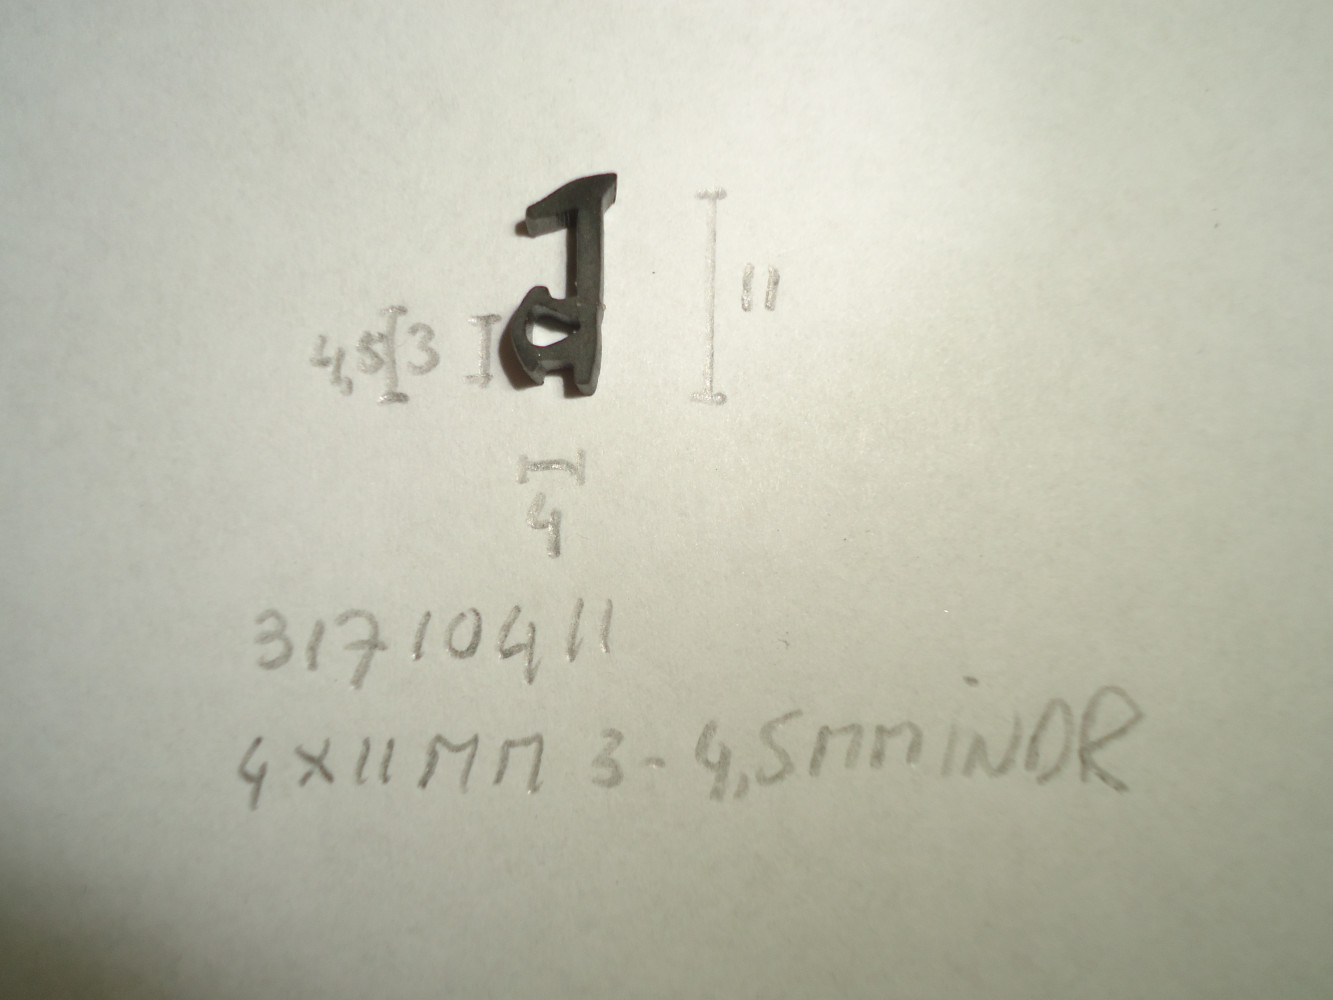 11
4,5 3
4
31710411
4X11MM 3-4,5MMINDR